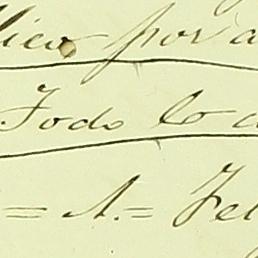 lico por a
Todo lo a
= A. = Fel